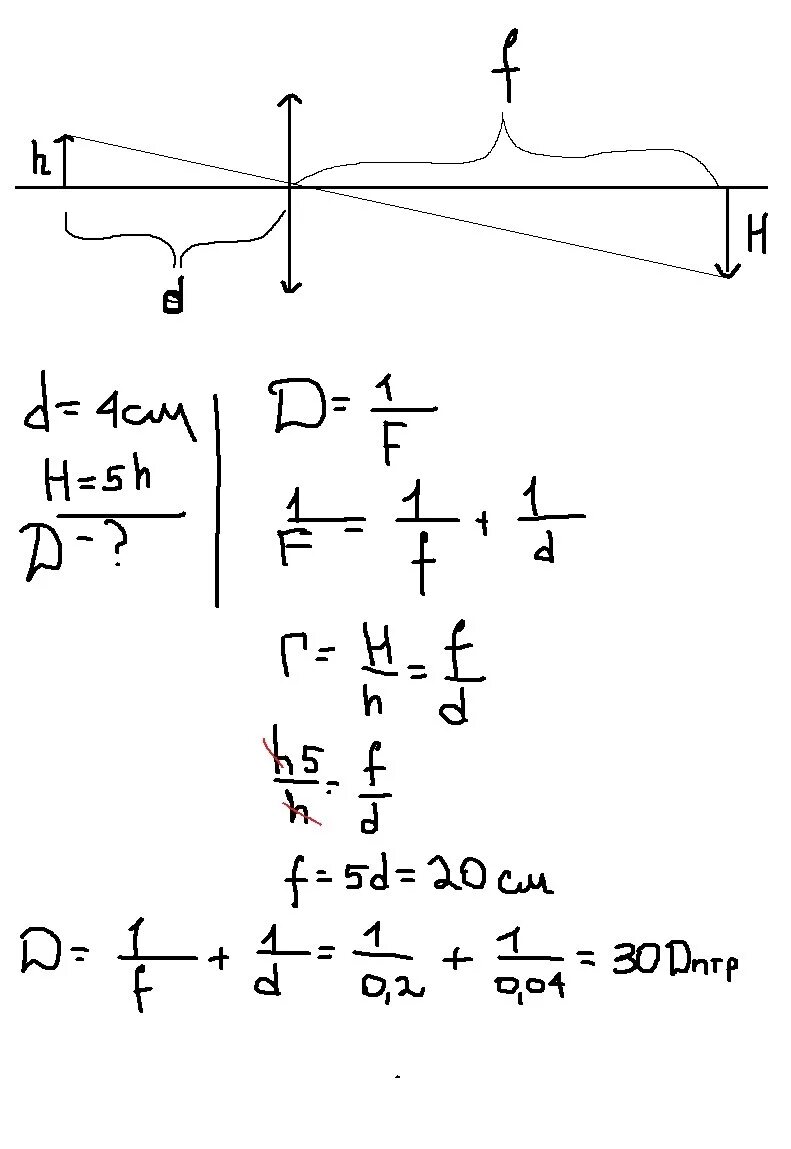 f
h
H
d
d = 4 см
H = 5h
D - ?
D = 1/F
1/F = 1/f + 1/d
Г = H/h = f/d
h5/h = f/d
f = 5d = 20 см
D = 1/f + 1/d = 1/0,2 + 1/0,04 = 30 Dптр